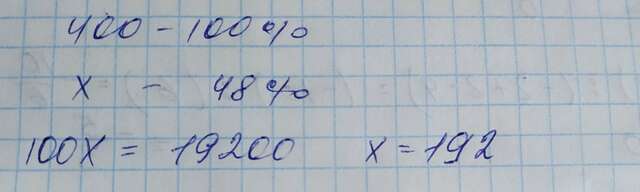 400 - 100%
x - 48%
100x = 19200 x = 192